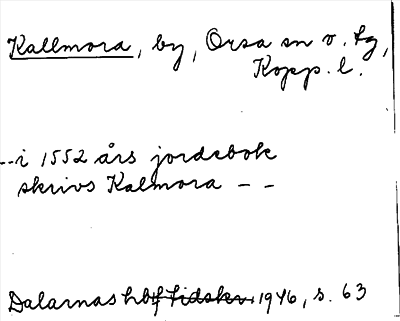 Kallmora, by, Orsa sn o. tg,
Kopp. l.
--i 1552 års jordebok
skrivs Kalmora - -
Dalarnas hbf tidskr. 1946, s. 63